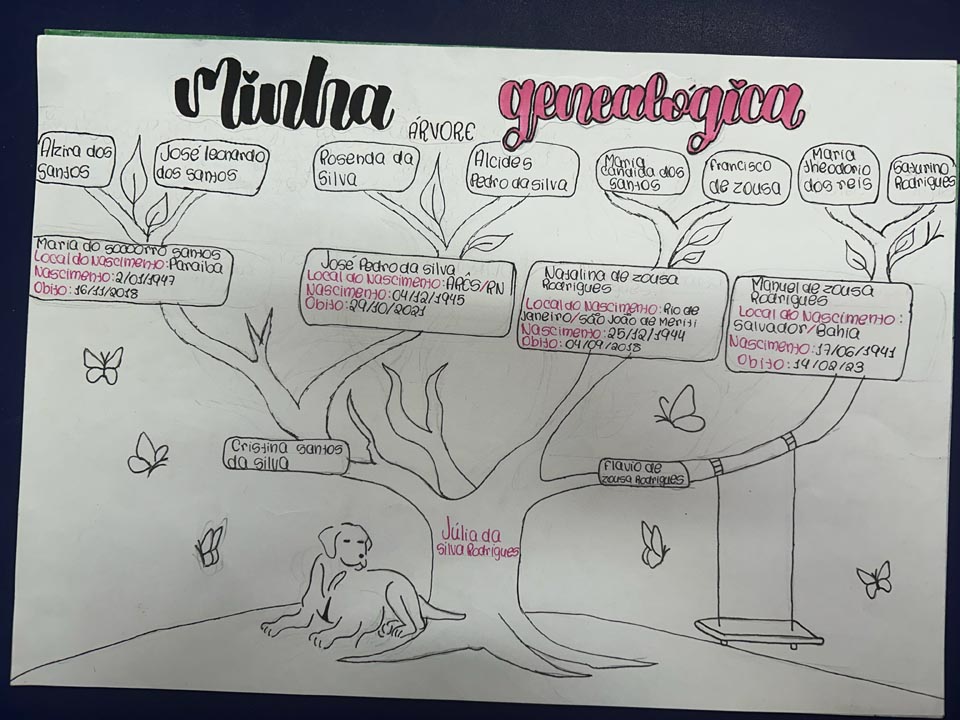 Minha ÁRVORE genealógica
Alzira dos
santos
José leonardo
dos santos
Rosenda da
silva
Alcides
Pedro da silva
Maria
candida dos
santos
francisco
de zousa
Maria
theodorio
dos reis
Saturino
Rodrigues
Maria do socorro santos
Local do Nascimento: Paraíba
Nascimento: 2/01/1947
Obito: 16/11/2018
José Pedro da silva
Local do Nascimento: APCS/RN
Nascimento: 04/12/1945
Obito: 29/10/2021
Natalina de zousa
Rodrigues
Local do Nascimento: Rio de
Janeiro/são João de Meriti
Nascimento: 25/12/1944
Obito: 04/09/2018
Manuel de zousa
Rodrigues
Local do Nascimento:
Salvador/Bahia
Nascimento: 17/06/1941
Obito: 14/02/23
Cristina santos
da silva
flavio de
zousa Rodrigues
Júlia da
silva Rodrigues